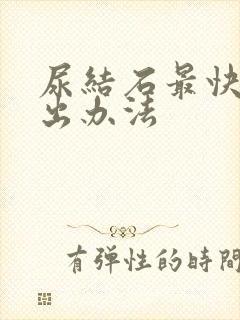 尿結石最快
出办法
有弹性的時間